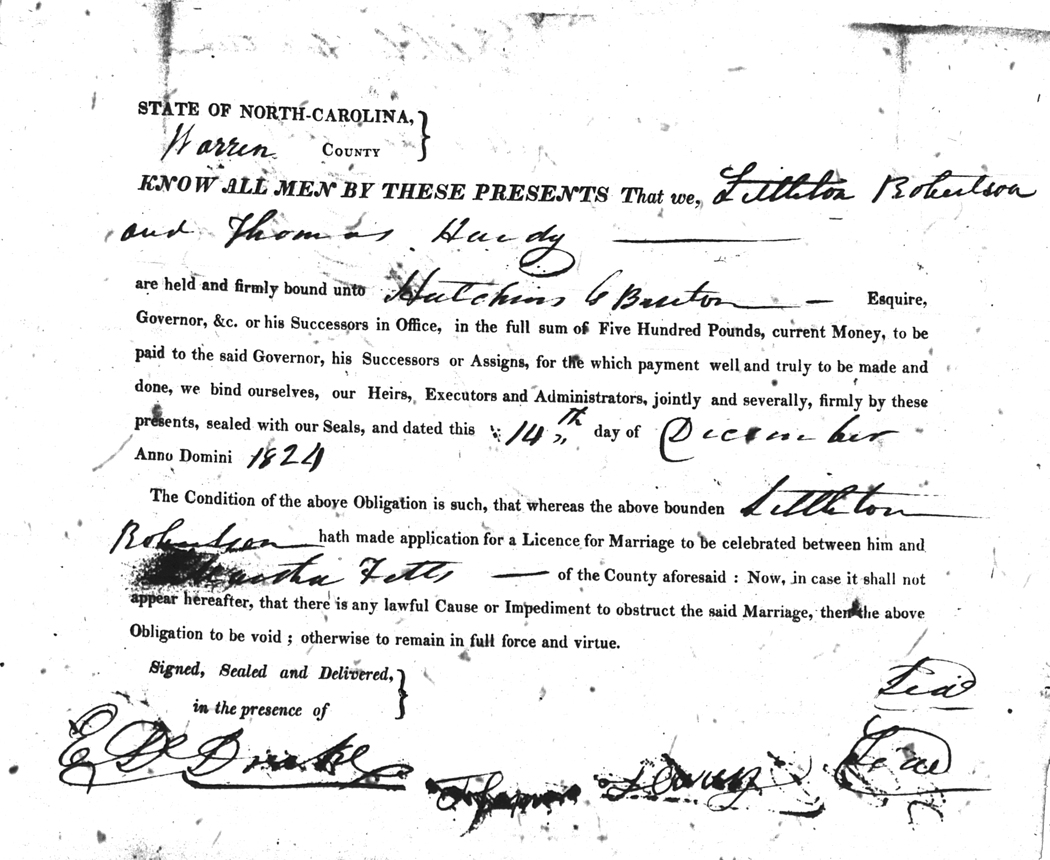 STATE OF NORTH-CAROLINA,
Warren COUNTY
KNOW ALL MEN BY THESE PRESENTS That we, Littleton Robertson
and Thomas Hardy
are held and firmly bound unto Hutchins G Burton — Esquire,
Governor, &c. or his Successors in Office, in the full sum of Five Hundred Pounds, current Money, to be
paid to the said Governor, his Successors or Assigns, for the which payment well and truly to be made and
done, we bind ourselves, our Heirs, Executors and Administrators, jointly and severally, firmly by these
presents, sealed with our Seals, and dated this 14th day of December
Anno Domini 1824
The Condition of the above Obligation is such, that whereas the above bounden Littleton
Robertson hath made application for a Licence for Marriage to be celebrated between him and
Fetts — of the County aforesaid : Now, in case it shall not
appear hereafter, that there is any lawful Cause or Impediment to obstruct the said Marriage, then the above
Obligation to be void ; otherwise to remain in full force and virtue.
Signed, Sealed and Delivered,
in the presence of
Seal
E D Drake Thomas Seal